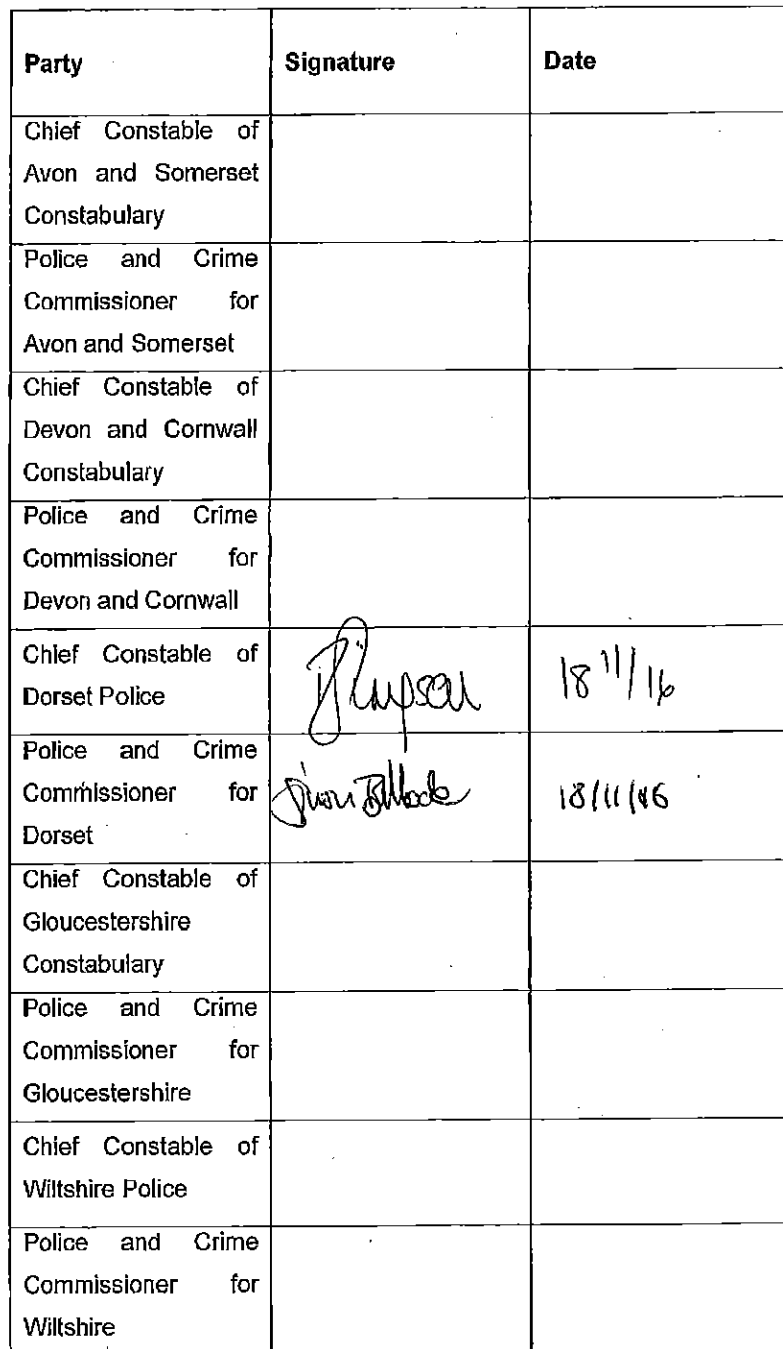 Party Signature Date
Chief Constable of
Avon and Somerset
Constabulary
Police and Crime
Commissioner for
Avon and Somerset
Chief Constable of
Devon and Cornwall
Constabulary
Police and Crime
Commissioner for
Devon and Cornwall
Chief Constable of
Dorset Police
18 11/16
Police and Crime
Commissioner for
Dorset
18/11/16
Chief Constable of
Gloucestershire
Constabulary
Police and Crime
Commissioner for
Gloucestershire
Chief Constable of
Wiltshire Police
Police and Crime
Commissioner for
Wiltshire